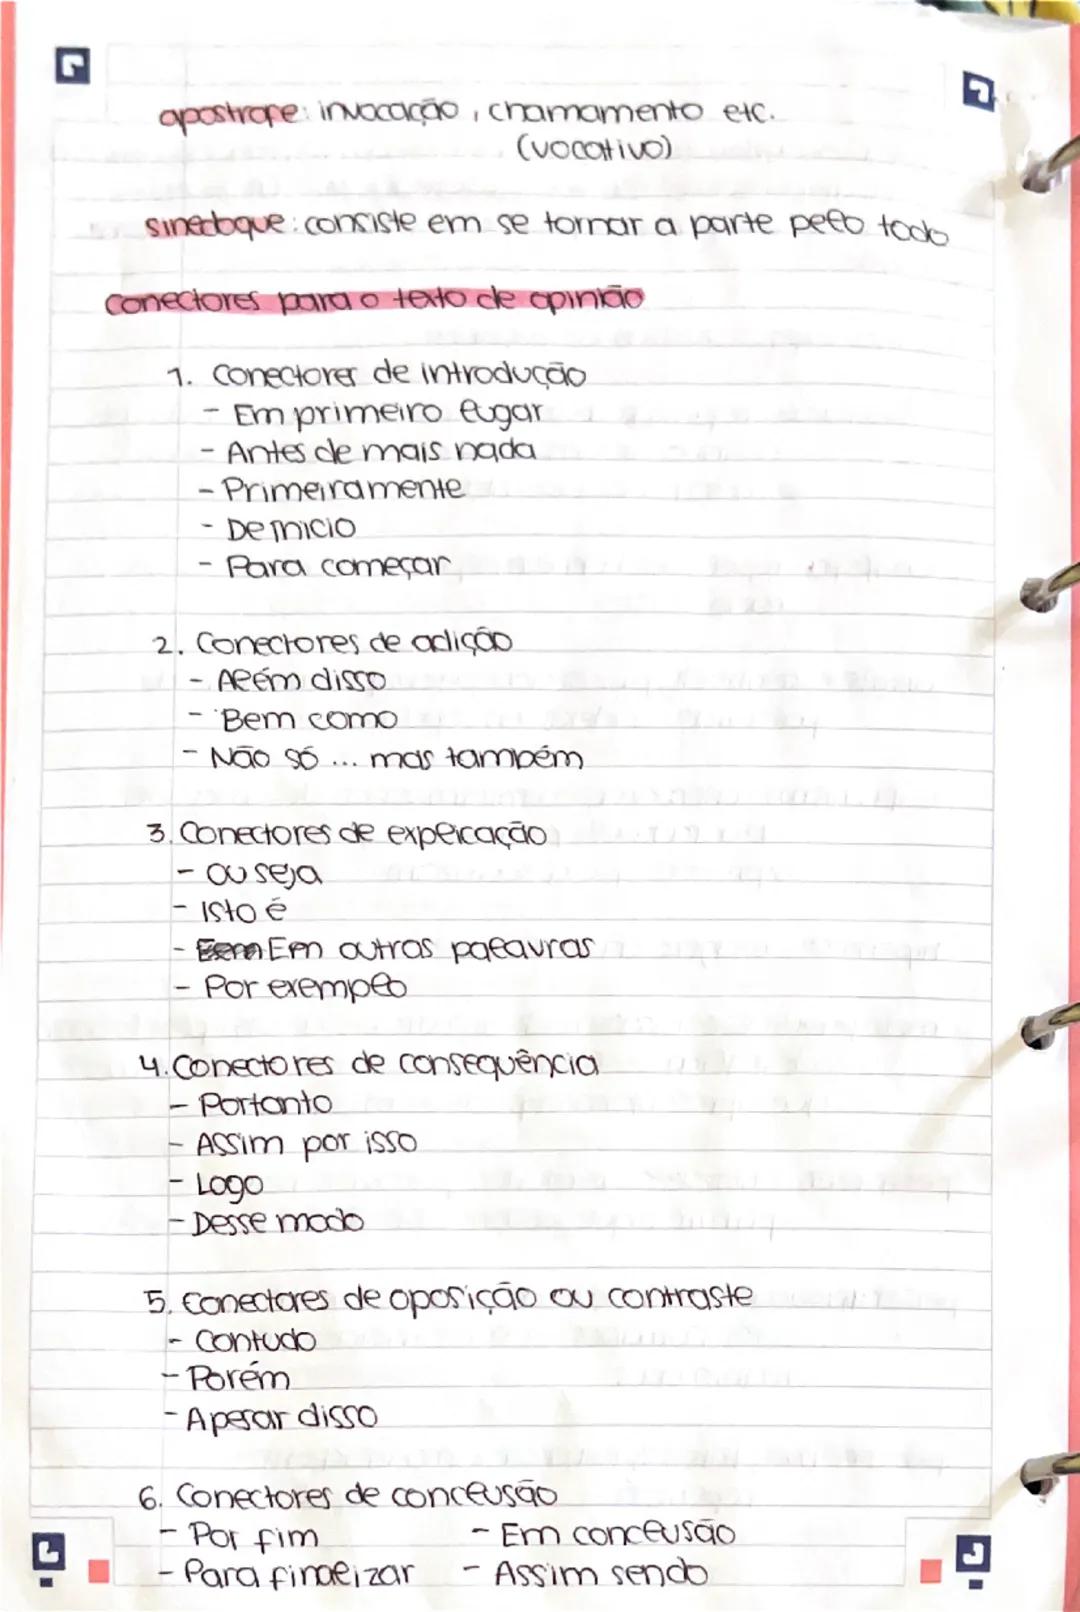 apostrofe: invocação, chamamento etc.
(vocativo)
sinedoque: consiste em se tomar a parte pelo todo
conectores para o texto de opinião
1. Conectores de introdução
- Em primeiro lugar
- Antes de mais nada
- Primeiramente
- De início
- Para começar
2. Conectores de adição
- Além disso
- Bem como
- Não só ... mas também
3. Conectores de explicação
- Ou seja
- Isto é
- Em outras palavras
- Por exemplo
4. Conectores de consequência
- Portanto
- Assim por isso
- Logo
- Desse modo
5. Conectores de oposição ou contraste
- Contudo
- Porém
- Apesar disso
6. Conectores de conclusão
- Por fim - Em conclusão
- Para finalizar - Assim sendo